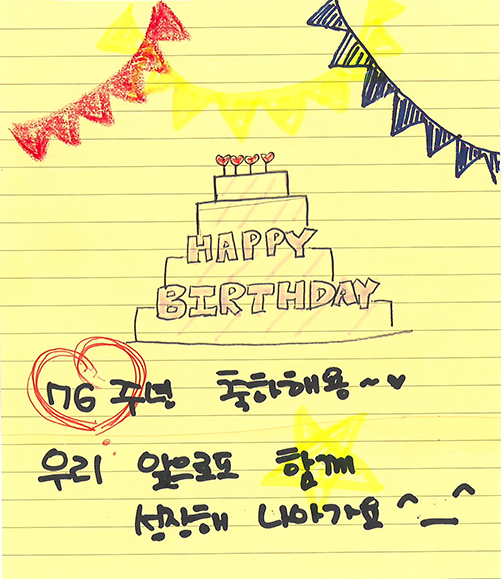 HAPPY
BIRTHDAY
76 주년 축하해용~♥
우리 앞으로도 함께
성장해 나아가요 ^_^